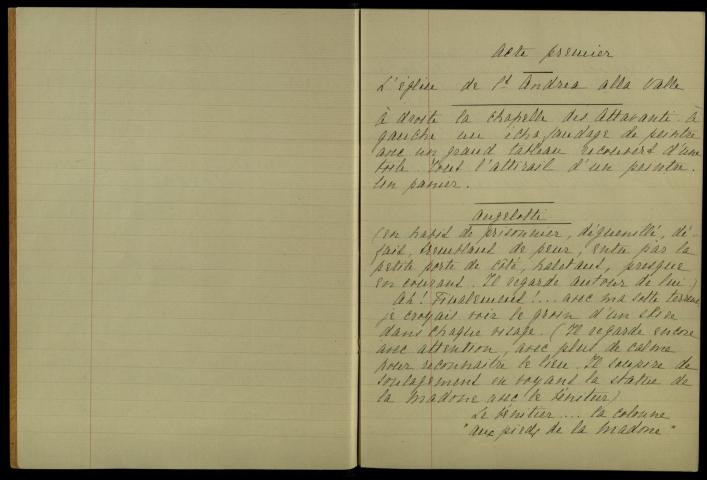 Acte premier
L'église de St Andrea alla Valle
à droite la chapelle des Attavanti. à
gauche un échafaudage de peintre
avec un grand tableau recouvert d'une
toile. Tout l'attirail d'un peintre.
Un panier.
Angelotti
(en habit de prisonnier, déguenillé, dé-
fait, tremblant de peur, entre par la
petite porte de côté, haletant, presque
en courant. Il regarde autour de lui.)
Ah! Finalement!... avec ma sotte terreur
je croyais voir le groin d'un sbire
dans chaque visage. (Il regarde encore
avec attention, avec plus de calme
pour reconnaître le lieu. Il soupire de
soulagement en voyant la statue de
la Madone avec le bénitier)
Le bénitier.... la colonne
"aux pieds de la Madone"